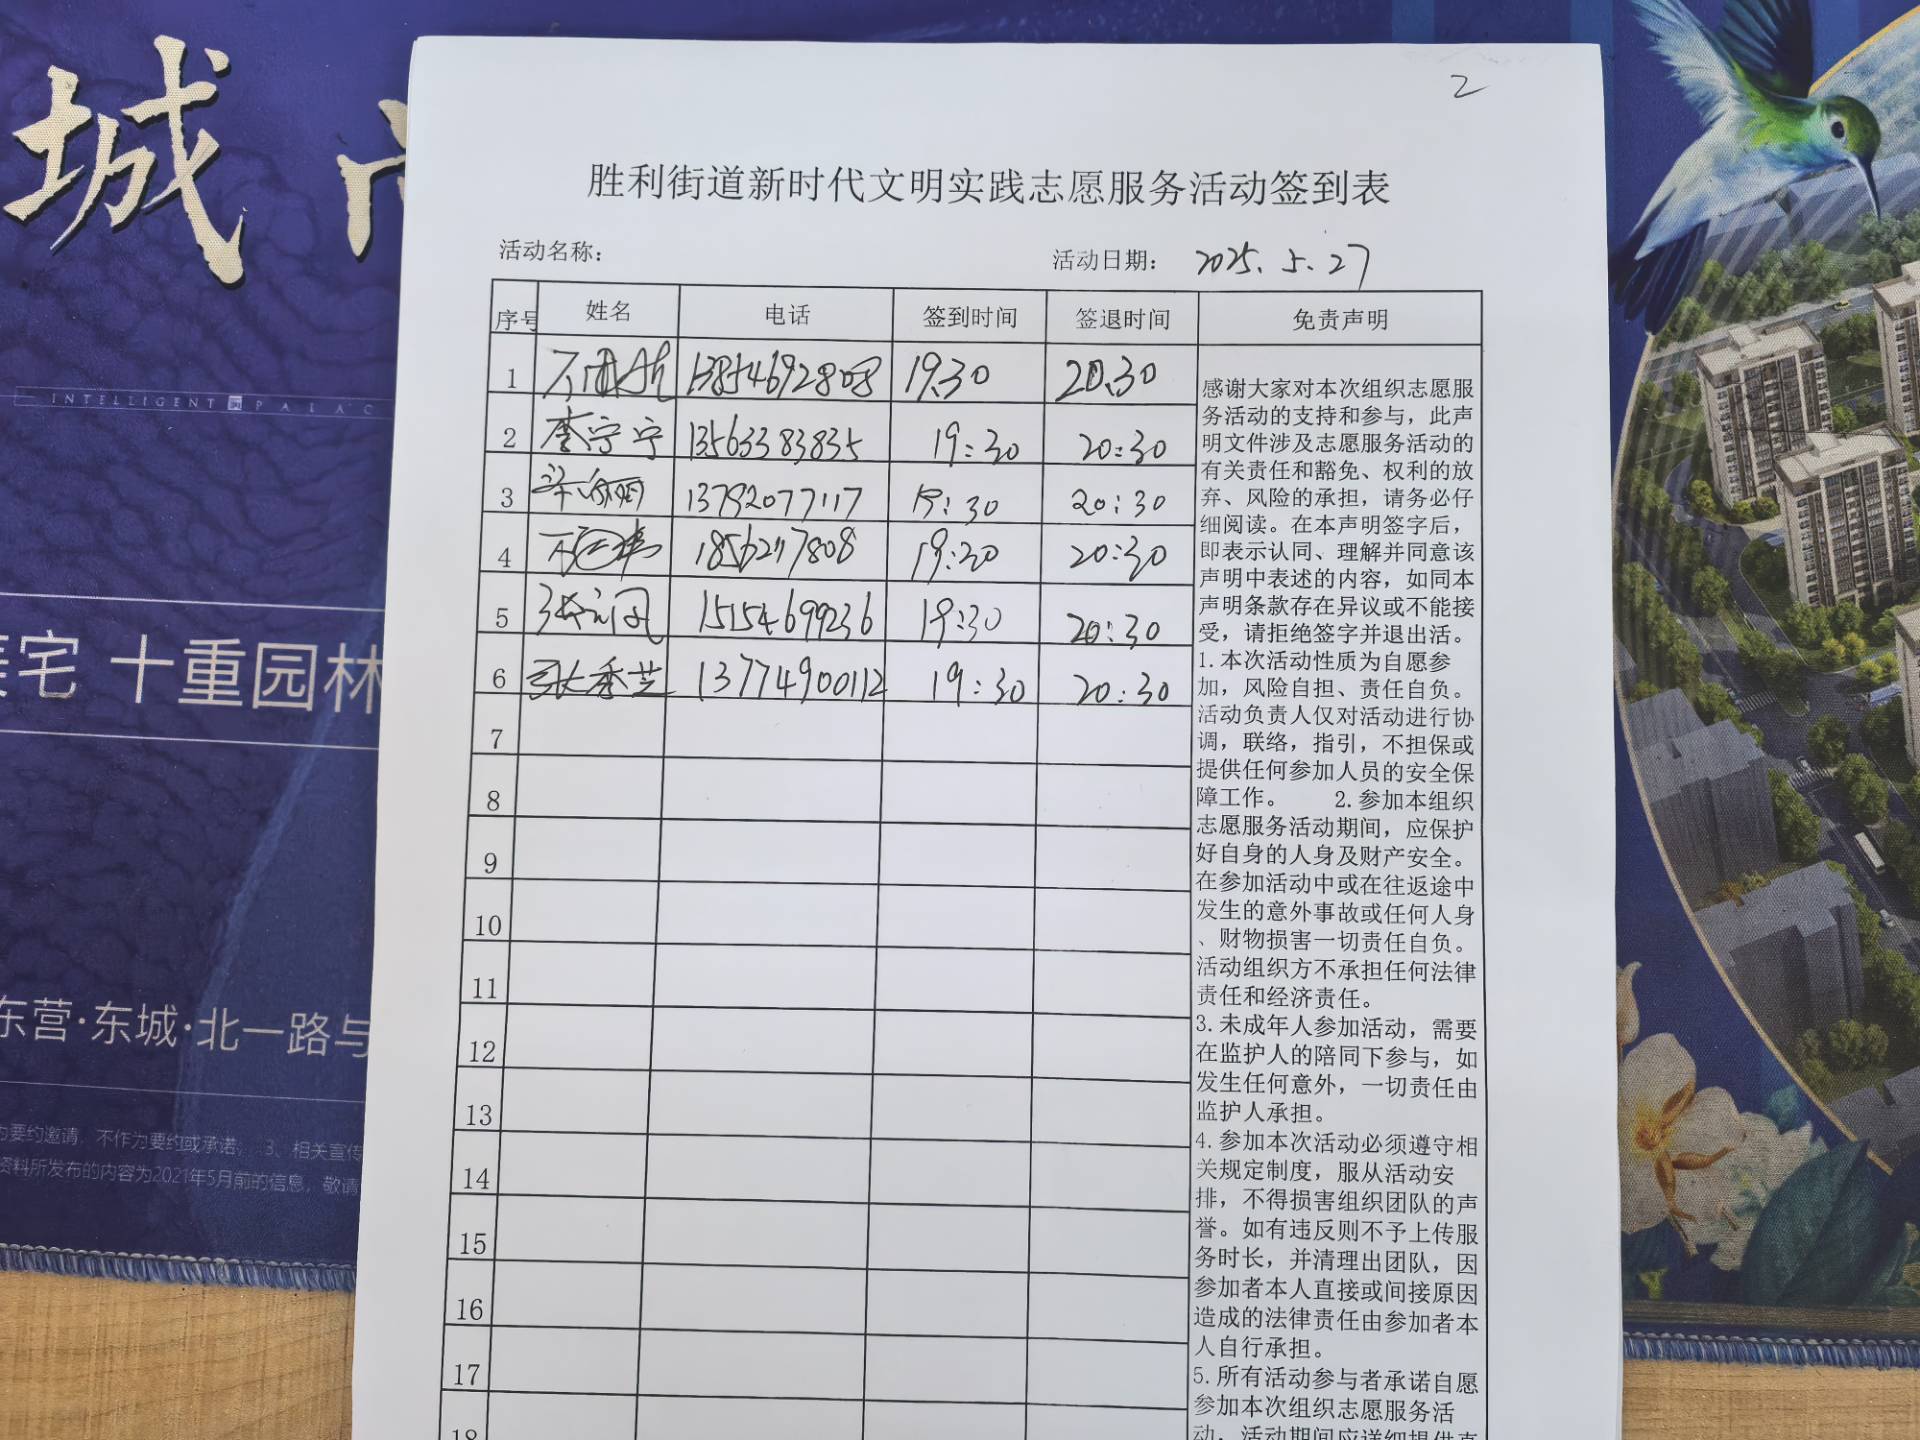 2
胜利街道新时代文明实践志愿服务活动签到表
活动名称：
活动日期： 2025.5.27
序号 姓名 电话 签到时间 签退时间 免责声明
1 19.30 20.30
2 李宁宁 13563383835 19:30 20:30
3 13792077117 19:30 20:30
4 19:30 20:30
5 15154699236 19:30 20:30
6 张秀芝 13774900112 19:30 20:30
7
8
9
10
11
12
13
14
15
16
17
18
感谢大家对本次组织志愿服
务活动的支持和参与，此声
明文件涉及志愿服务活动的
有关责任和豁免、权利的放
弃、风险的承担，请务必仔
细阅读。在本声明签字后，
即表示认同、理解并同意该
声明中表述的内容，如同本
声明条款存在异议或不能接
受，请拒绝签字并退出活。
1.本次活动性质为自愿参
加，风险自担、责任自负。
活动负责人仅对活动进行协
调，联络，指引，不担保或
提供任何参加人员的安全保
障工作。 2.参加本组织
志愿服务活动期间，应保护
好自身的人身及财产安全。
在参加活动中或在往返途中
发生的意外事故或任何人身
、财物损害一切责任自负。
活动组织方不承担任何法律
责任和经济责任。
3.未成年人参加活动，需要
在监护人的陪同下参与，如
发生任何意外，一切责任由
监护人承担。
4.参加本次活动必须遵守相
关规定制度，服从活动安
排，不得损害组织团队的声
誉。如有违反则不予上传服
务时长，并清理出团队，因
参加者本人直接或间接原因
造成的法律责任由参加者本
人自行承担。
5.所有活动参与者承诺自愿
参加本次组织志愿服务活
动，活动期间应详细提供真
城
INTELLIGENT PALAC
宅 十重园林
东营·东城·北一路与
为要约邀请，不作为要约或承诺； 3、相关宣传
资料所发布的内容为2021年5月前的信息，敬请